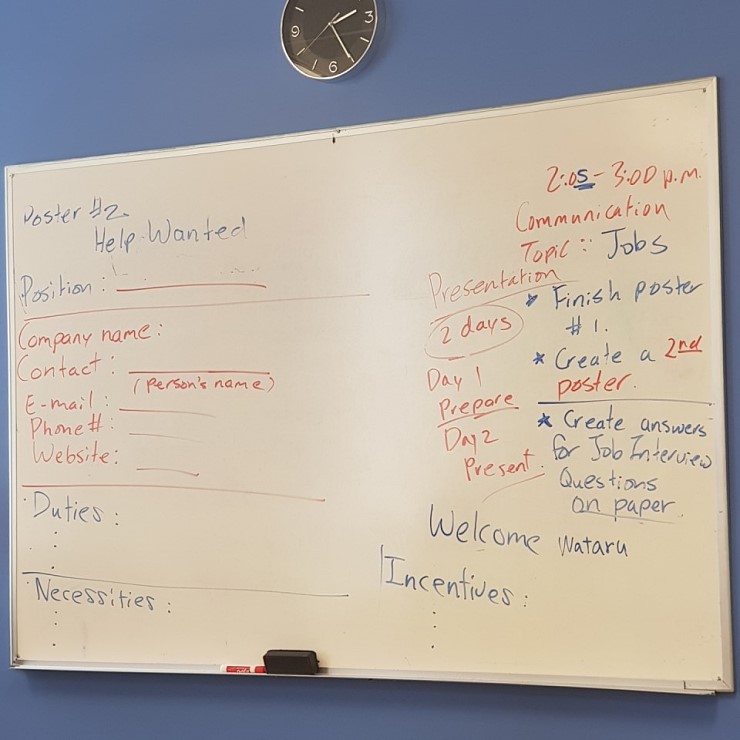 9
3
6
Poster #2
Help Wanted
Position :
Company name :
Contact :
(person's name)
E-mail :
Phone # :
Website :
Duties :
Necessities :
2:05 - 3:00 p.m.
Communication
Topic : Jobs
Presentation
2 days
Day 1
Prepare
Day 2
Present.
* Finish poster
#1.
* Create a 2nd
poster.
* Create answers
for Job Interview
Questions
on paper.
Welcome Wataru
Incentives :